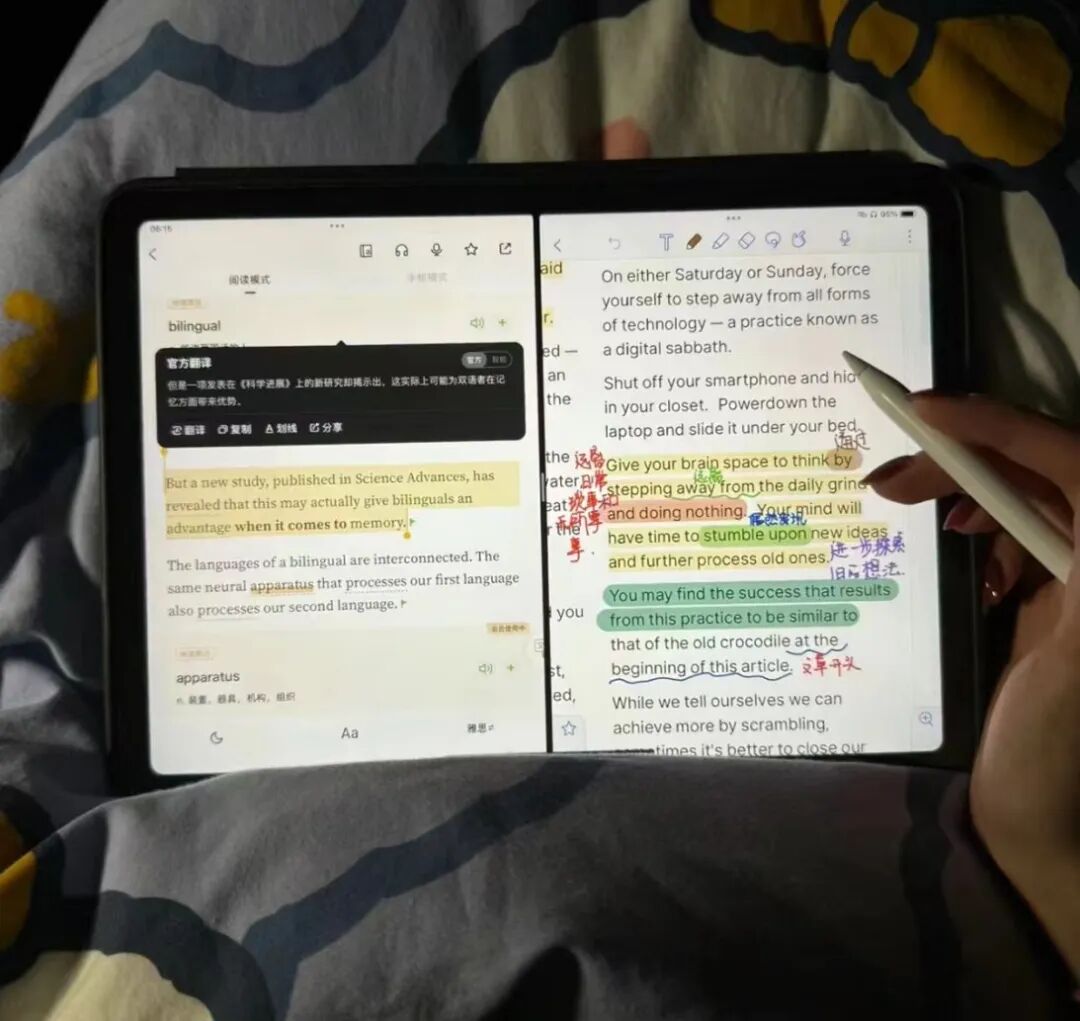 06:15
95%
阅读模式
bilingual
官方翻译
官方
但是一项发表在《科学进展》上的新研究却揭示出，这实际上可能为双语者在记
忆方面带来优势。
翻译 复制 划线 分享
But a new study, published in Science Advances, has
revealed that this may actually give bilinguals an
advantage when it comes to memory.
The languages of a bilingual are interconnected. The
same neural apparatus that processes our first language
also processes our second language.
apparatus
n. 装置，器具，机构，组织
Aa
雅思
aid
r.
ed —
an
the
the
vater
eat
r the
you
st,
ed,
On either Saturday or Sunday, force
yourself to step away from all forms
of technology — a practice known as
a digital sabbath.
Shut off your smartphone and hid
in your closet. Powerdown the
laptop and slide it under your bed.
通过
Give your brain space to think by
远离
stepping away from the daily grind
远离
日常
琐事和
and doing nothing. Your mind will
偶然发现
have time to stumble upon new ideas
and further process old ones.
进一步探索
旧的想法.
You may find the success that results
from this practice to be similar to
that of the old crocodile at the
beginning of this article.
文章开头
While we tell ourselves we can
achieve more by scrambling,
sometimes it's better to close our